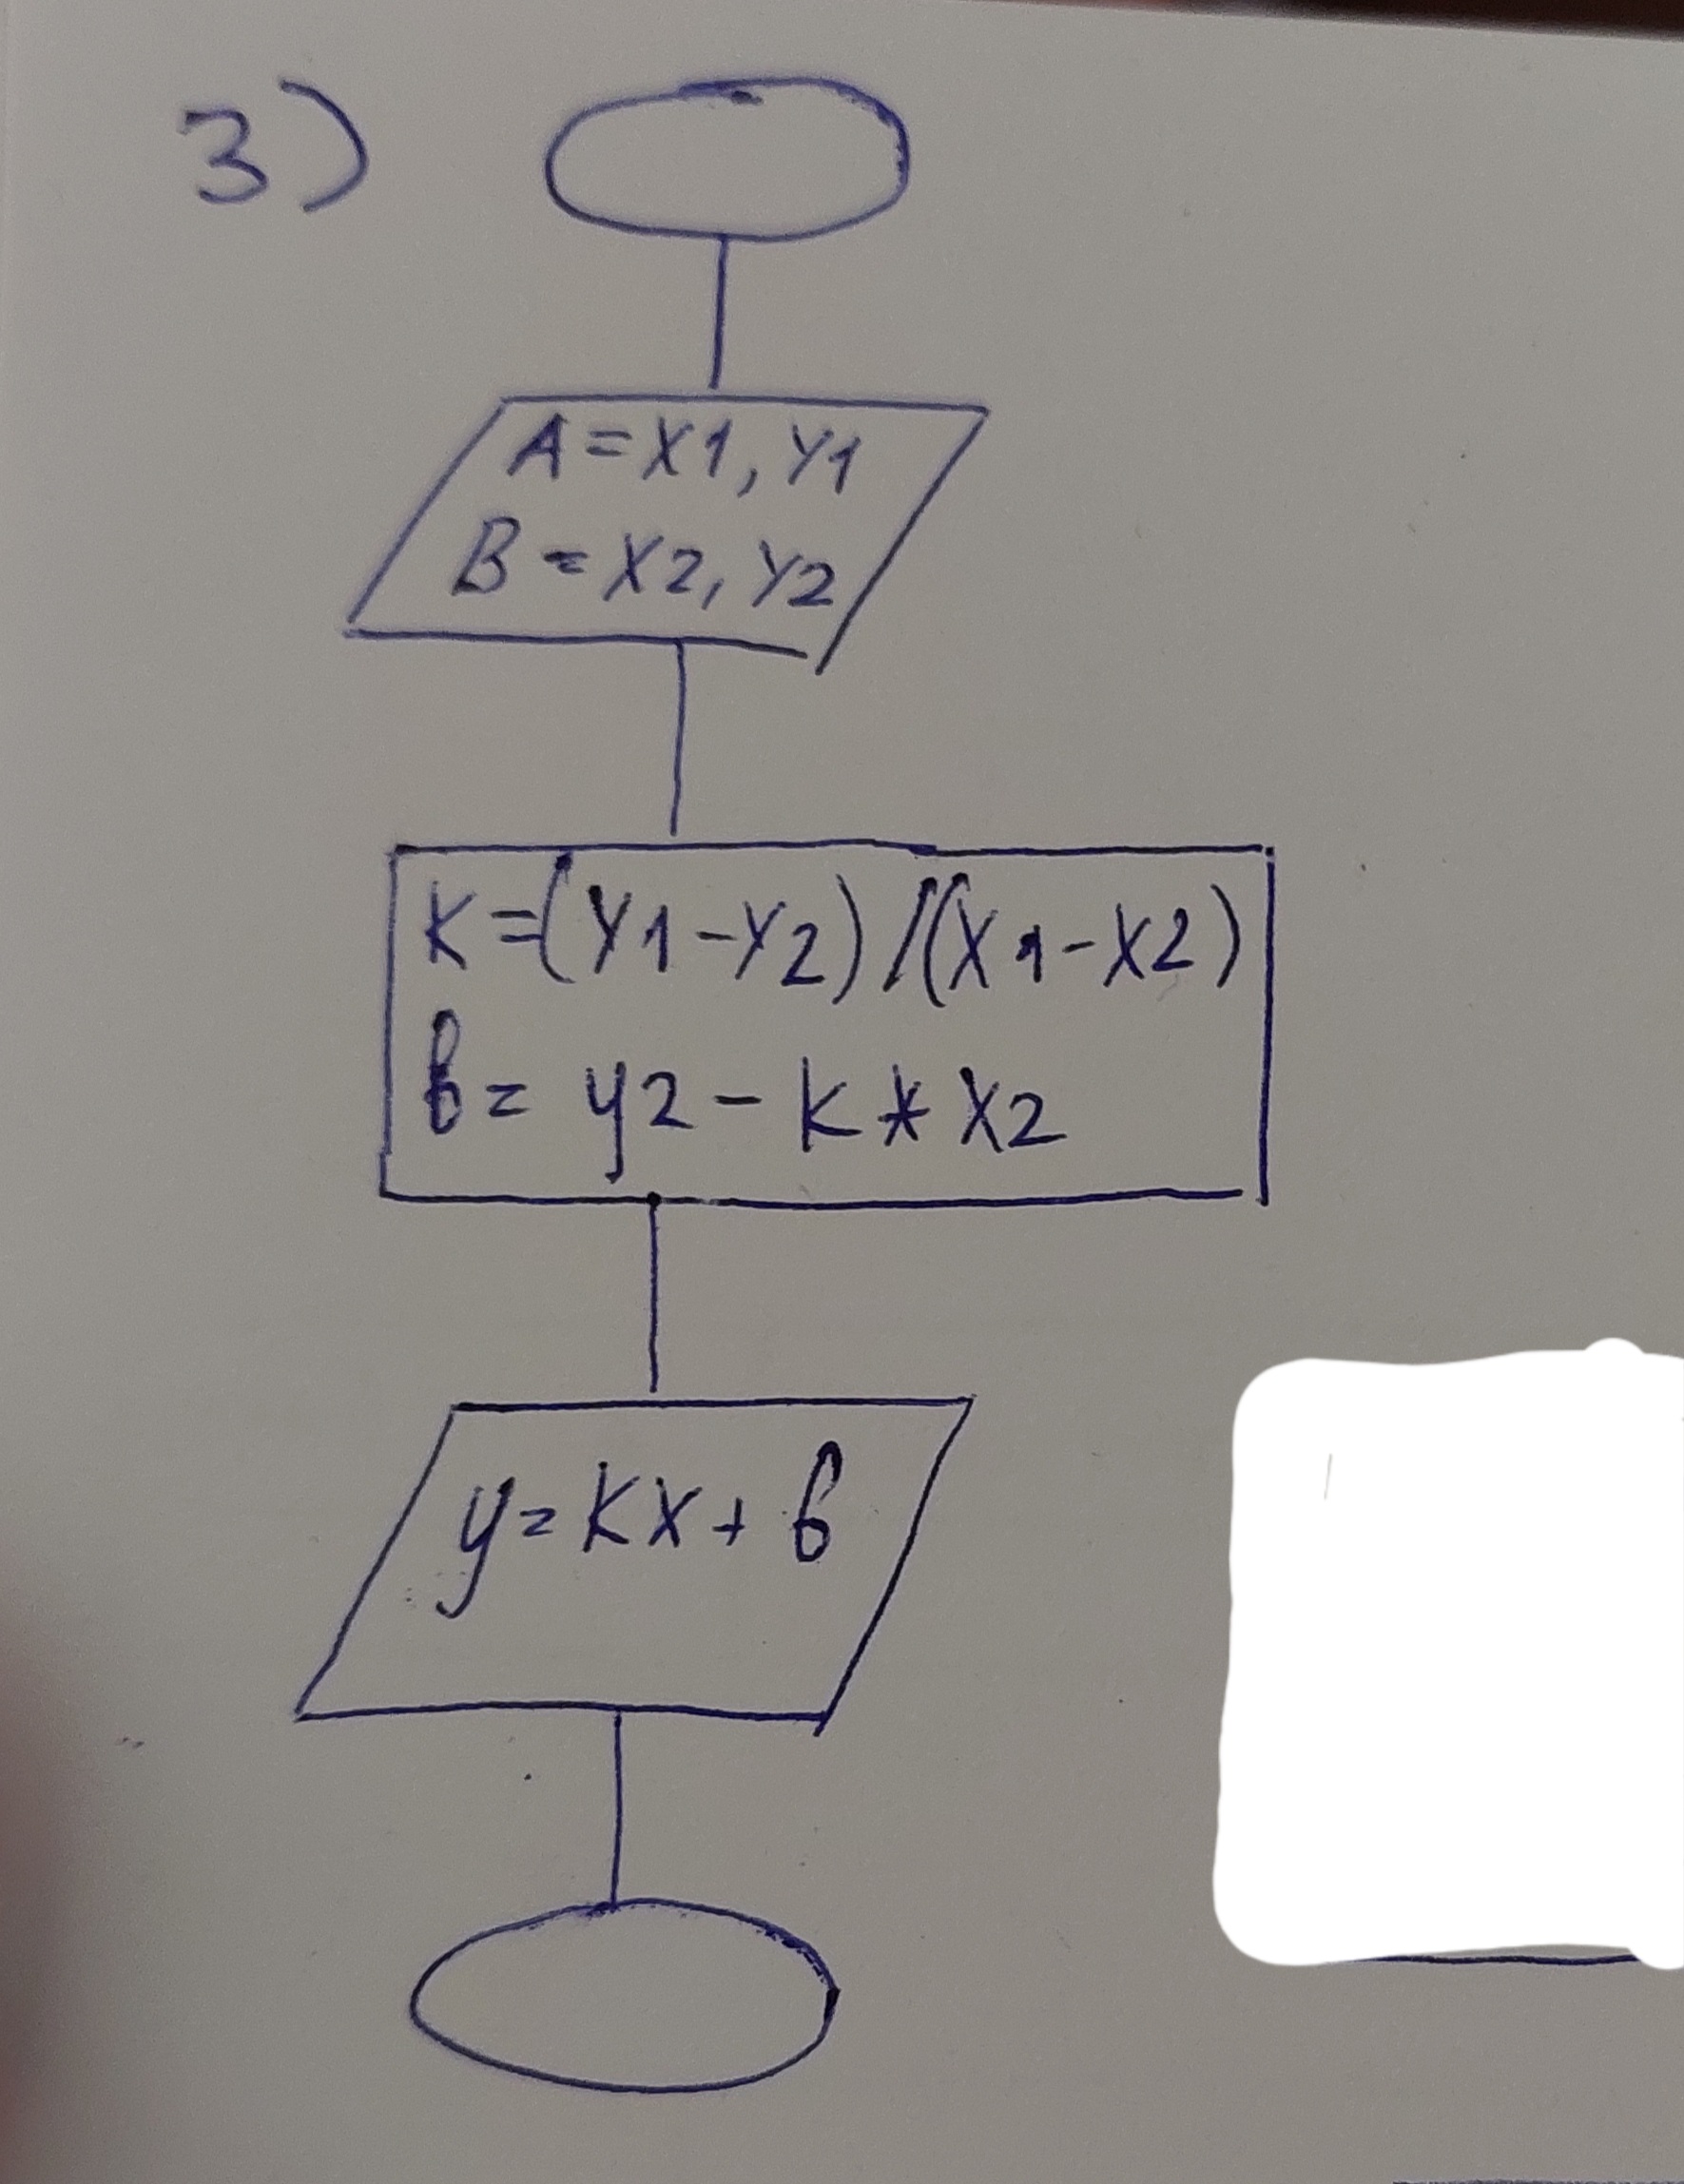 3)
A=X1, Y1
B=X2, Y2
K=(Y1-Y2)/(X1-X2)
в= y2-K*X2
y=KX+в